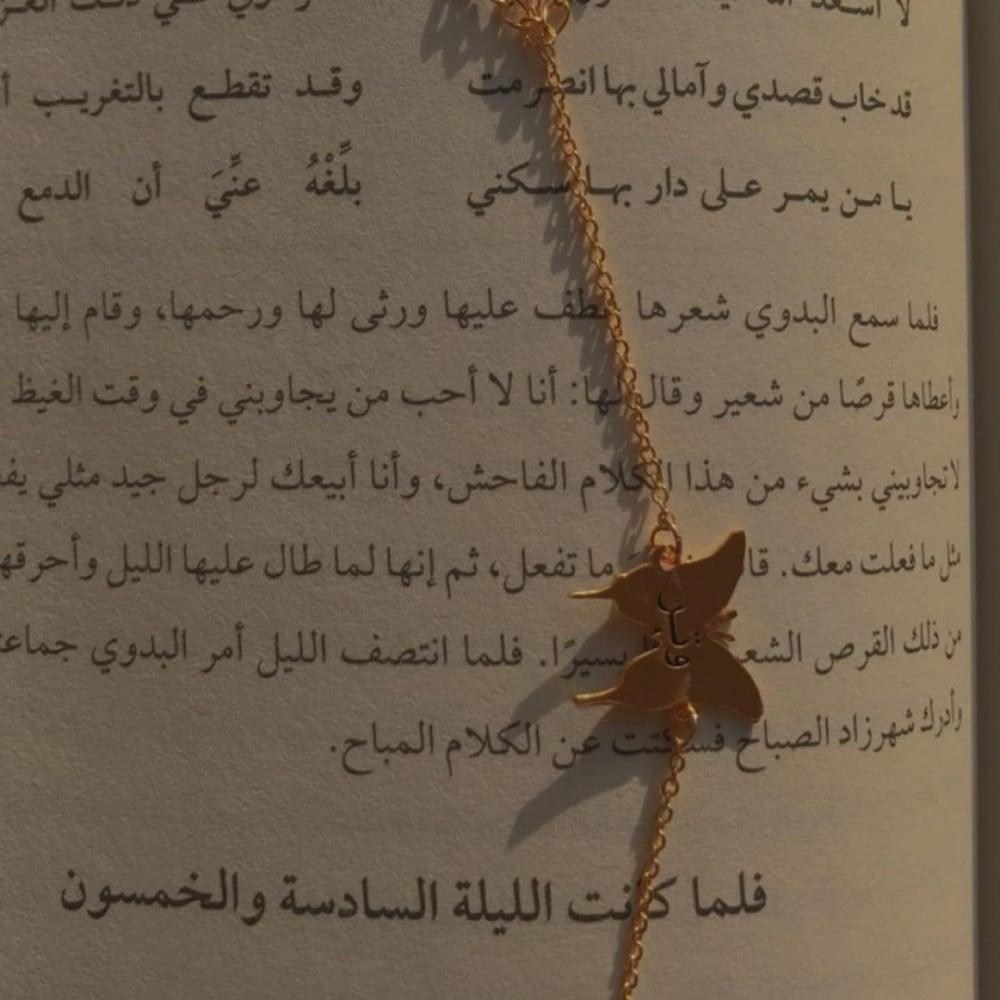 قد خاب قصدي وآمالي بها انصرمت وقد تقطع بالتغريب
يا من يمر على دار بها سكني بلِّغْهُ عنِّيَ أن الدمع
فلما سمع البدوي شعرها عطف عليها ورثى لها ورحمها، وقام إليها
وأعطاها قرصًا من شعير وقال لها: أنا لا أحب من يجاوبني في وقت الغيظ
لا تجاوبيني بشيء من هذا الكلام الفاحش، وأنا أبيعك لرجل جيد مثلي
مثل ما فعلت معك. ما تفعل، ثم إنها لما طال عليها الليل
من ذلك القرص يسيرًا. فلما انتصف الليل أمر البدوي
وأدرك شهرزاد الصباح فسكتت عن الكلام المباح.
فلما كانت الليلة السادسة والخمسون